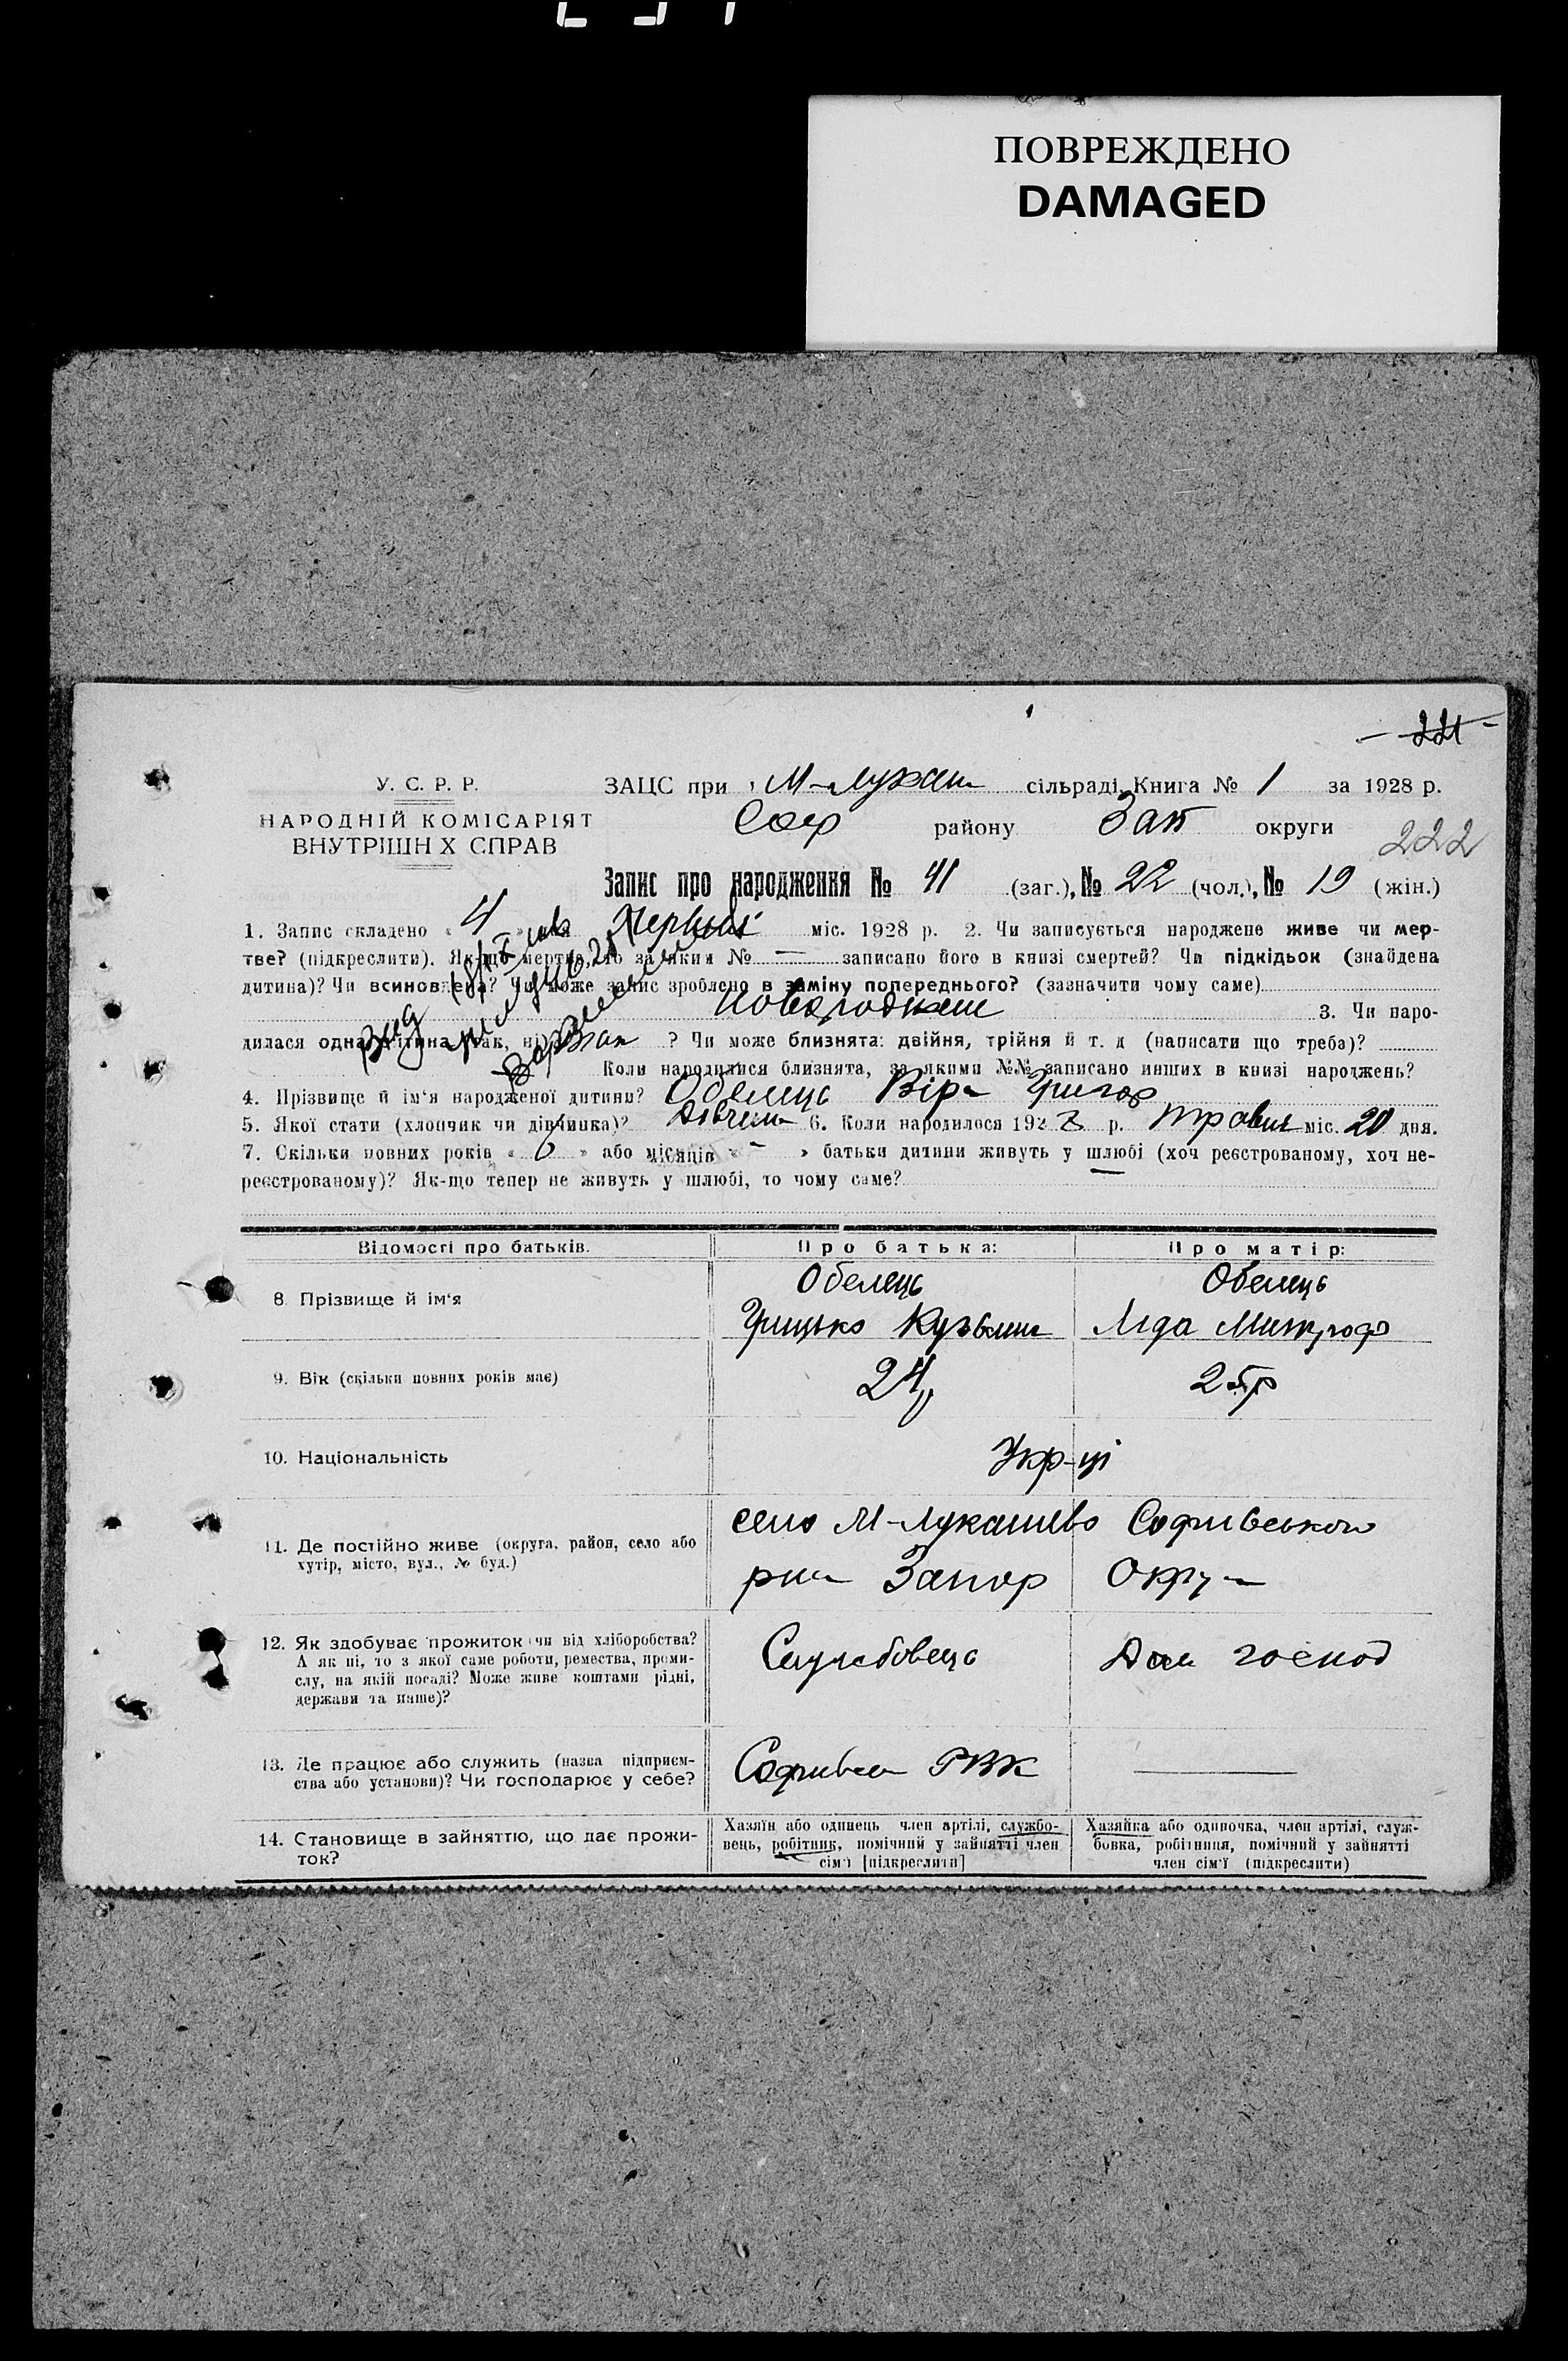 ПОВРЕЖДЕНО
DAMAGED
221
У. С. Р. Р.
НАРОДНІЙ КОМІСАРІЯТ
ВНУТРІШН Х СПРАВ
ЗАЦС при М-Лукаш сільраді Книга № 1 за 1928 р.
Соф району Зап округи
222
Запис про народження № 41 (заг.), № 22 (чол.), № 19 (жін.)
1. Запис складено « 4 » дня Червня міс. 1928 р. 2. Чи записується народжене живе чи мер-
тве? (підкреслити). Як-що мертве, то за яким № — записано його в книзі смертей? Чи підкідьок (знайдена
дитина)? Чи всиновлена? Чи може запис зроблено в заміну попереднього? (зазначити чому саме)
новорожден 3. Чи наро-
дилася одна дитина (так, ні) Так ? Чи може близнята: двійня, трійня й т. д (написати що треба)?
Коли народилися близнята, за якими №№ записано инших в книзі народжень?
4. Прізвище й ім'я народженої дитини? Обелець Віра Григор
5. Якої стати (хлопчик чи дівчинка)? Дівчина 6. Коли народилося 1928 р. травня міс. 20 дня.
7. Скільки повних років « 6 » або місяців « - » батьки дитини живуть у шлюбі (хоч реєстрованому, хоч не-
реєстрованому)? Як-що тепер не живуть у шлюбі, то чому саме?
Відомості про батьків. Про батька: Про матір:
8. Прізвище й ім'я Обелець Обелець
Грицько Кузьмич Ліда Митроф
9. Вік (скільки повних років має) 24 р 25 р
10. Національність Укр-ці
11. Де постійно живе (округа, район, село або
хутір, місто, вул., № буд.)
село М-Лукашево Софиївського
р-на Запор Округи
12. Як здобуває прожиток чи від хліборобства?
А як ні, то з якої саме роботи, ремества, проми-
слу, на якій посаді? Може живе коштами рідні,
держави та инше)?
Службовець Дом господ
13. Де працює або служить (назва підприєм-
ства або установи)? Чи господарює у себе?
Софиївка РВК —
14. Становище в зайняттю, що дає прожи-
ток?
Хазяїн або одинець член артілі, службо-
вець, робітник, помічний у зайнятті член
сім'ї [підкреслити]
Хазяйка або одиночка, член артілі, служ-
бовка, робітниця, помічний у зайнятті
член сім'ї (підкреслити)